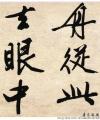 丹從此
去眼中